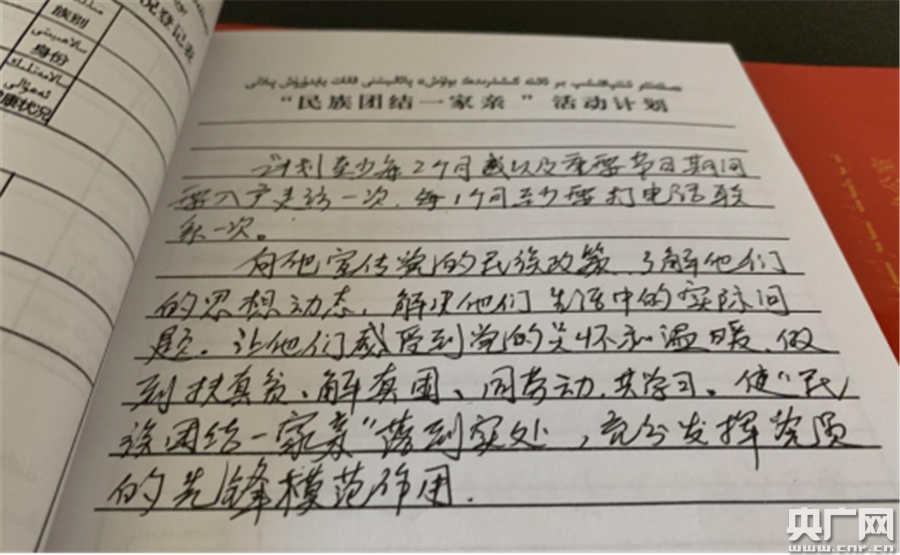 族别
身份
康状况
况登记表
"民族团结一家亲"活动计划
计划至少每2个月或以及重要节日期间
要入户走访一次,每1个月至少要打电话联
系一次。
向他宣传党的民族政策,了解他们
的思想动态,解决他们生活中的实际问
题。让他们感受到党的关怀和温暖,做
到扶真贫、解真困、同劳动、共学习。使"民
族团结一家亲"落到实处,充分发挥党员
的先锋模范作用.
央广网
www.cnr.cn